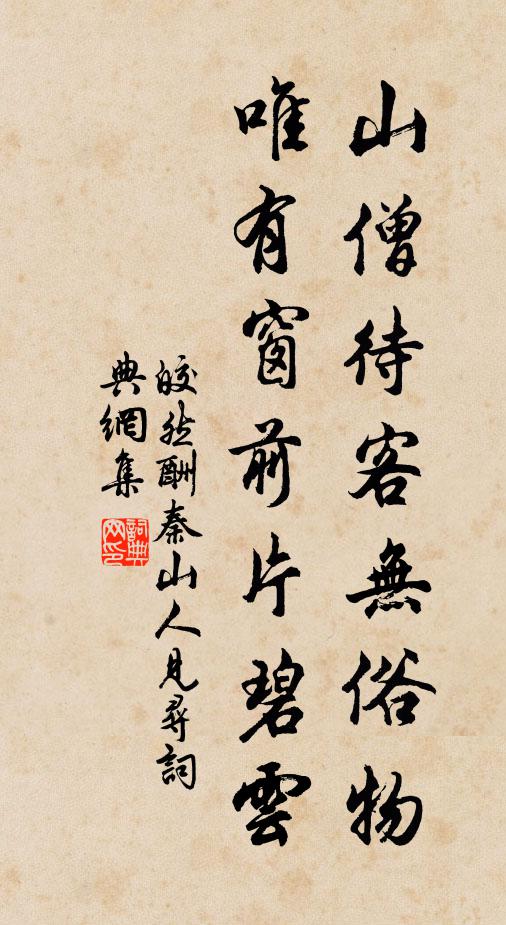 山僧待客無俗物
唯有窗前片碧雲
皎然酬秦山人見尋詞
典網集
詞典
网印